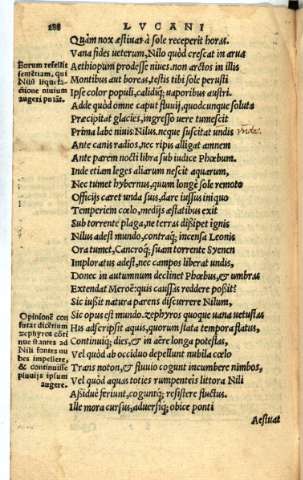 288 LVCANI
Quàm nox æstiuas à sole receperit horas.
Vana fides ueterum, Nilo quòd crescat in arua
Aethiopum prodesse niues. non arctos in illis
Montibus aut boreas, testis tibi sole perusti
Ipse color populi, calidiq; uaporibus austri.
Adde quòd omne caput fluuij, quodcunque soluta
Præcipitat glacies, ingresso uere tumescit
Prima labe niuis Nilus. neque suscitat undis
Ante canis radios, nec ripis alligat amnem
Ante parem nocti libra sub iudice Phœbum.
Inde etiam leges aliarum nescit aquarum,
Nec tumet hybernus, quum longè sole remoto
Officijs caret unda suis, dare iussus iniquo
Temperiem cœlo, medijs æstatibus exit
Sub torrente plaga, ne terras dissipet ignis
Nilus adest mundo, contraq; incensa Leonis
Ora tumet, Cancroq; suam torrente Syenen
Imploratus adest, nec campos liberat undis,
Donec in autumnum declinet Phœbus, & umbras
Extendat Meroë: quis caussas reddere posset?
Sic iussit natura parens discurrere Nilum,
Sic opus est mundo. zephyros quoque uana uetustas
His adscripsit aquis, quorum stata tempora flatus,
Continuiq; dies, & in aëre longa potestas,
Vel quòd ab occiduo depellunt nubila cœlo
Trans noton, & fluuio cogunt incumbere nimbos,
Vel quòd aquas toties rumpenteis littora Nili
Assiduè feriunt, coguntq; resistere fluctus.
Ille mora cursus, aduersiq; obice ponti
Aestuat
Eorum refellit
sententiam, qui
Nili liquefa-
ctione niuium
augeri putāt.
Opinionē con
futat dicētium
zephyros cōti
nue stantes ad
Nili fontes nu
bes impellere,
& continuisse
pluuijs ipsum
augere.